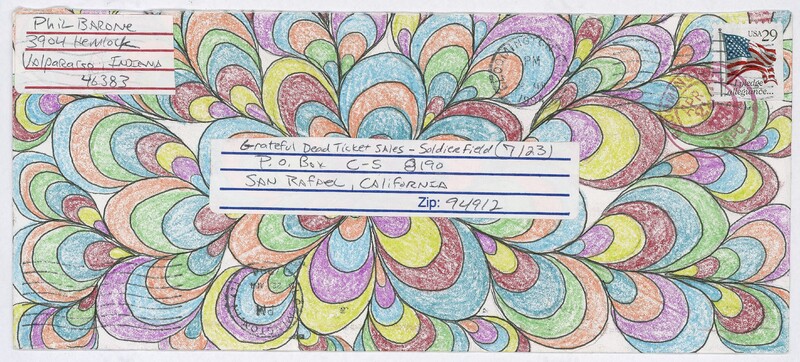 Phil Barone
3904 Hemlock
Valparaiso, Indiana
46383
USA 29
I pledge
allegiance...
Grateful Dead Ticket Sales - Soldier Field (7/23)
P.O. Box C-S 8190
San Rafael, California
Zip: 94912
PM
PM